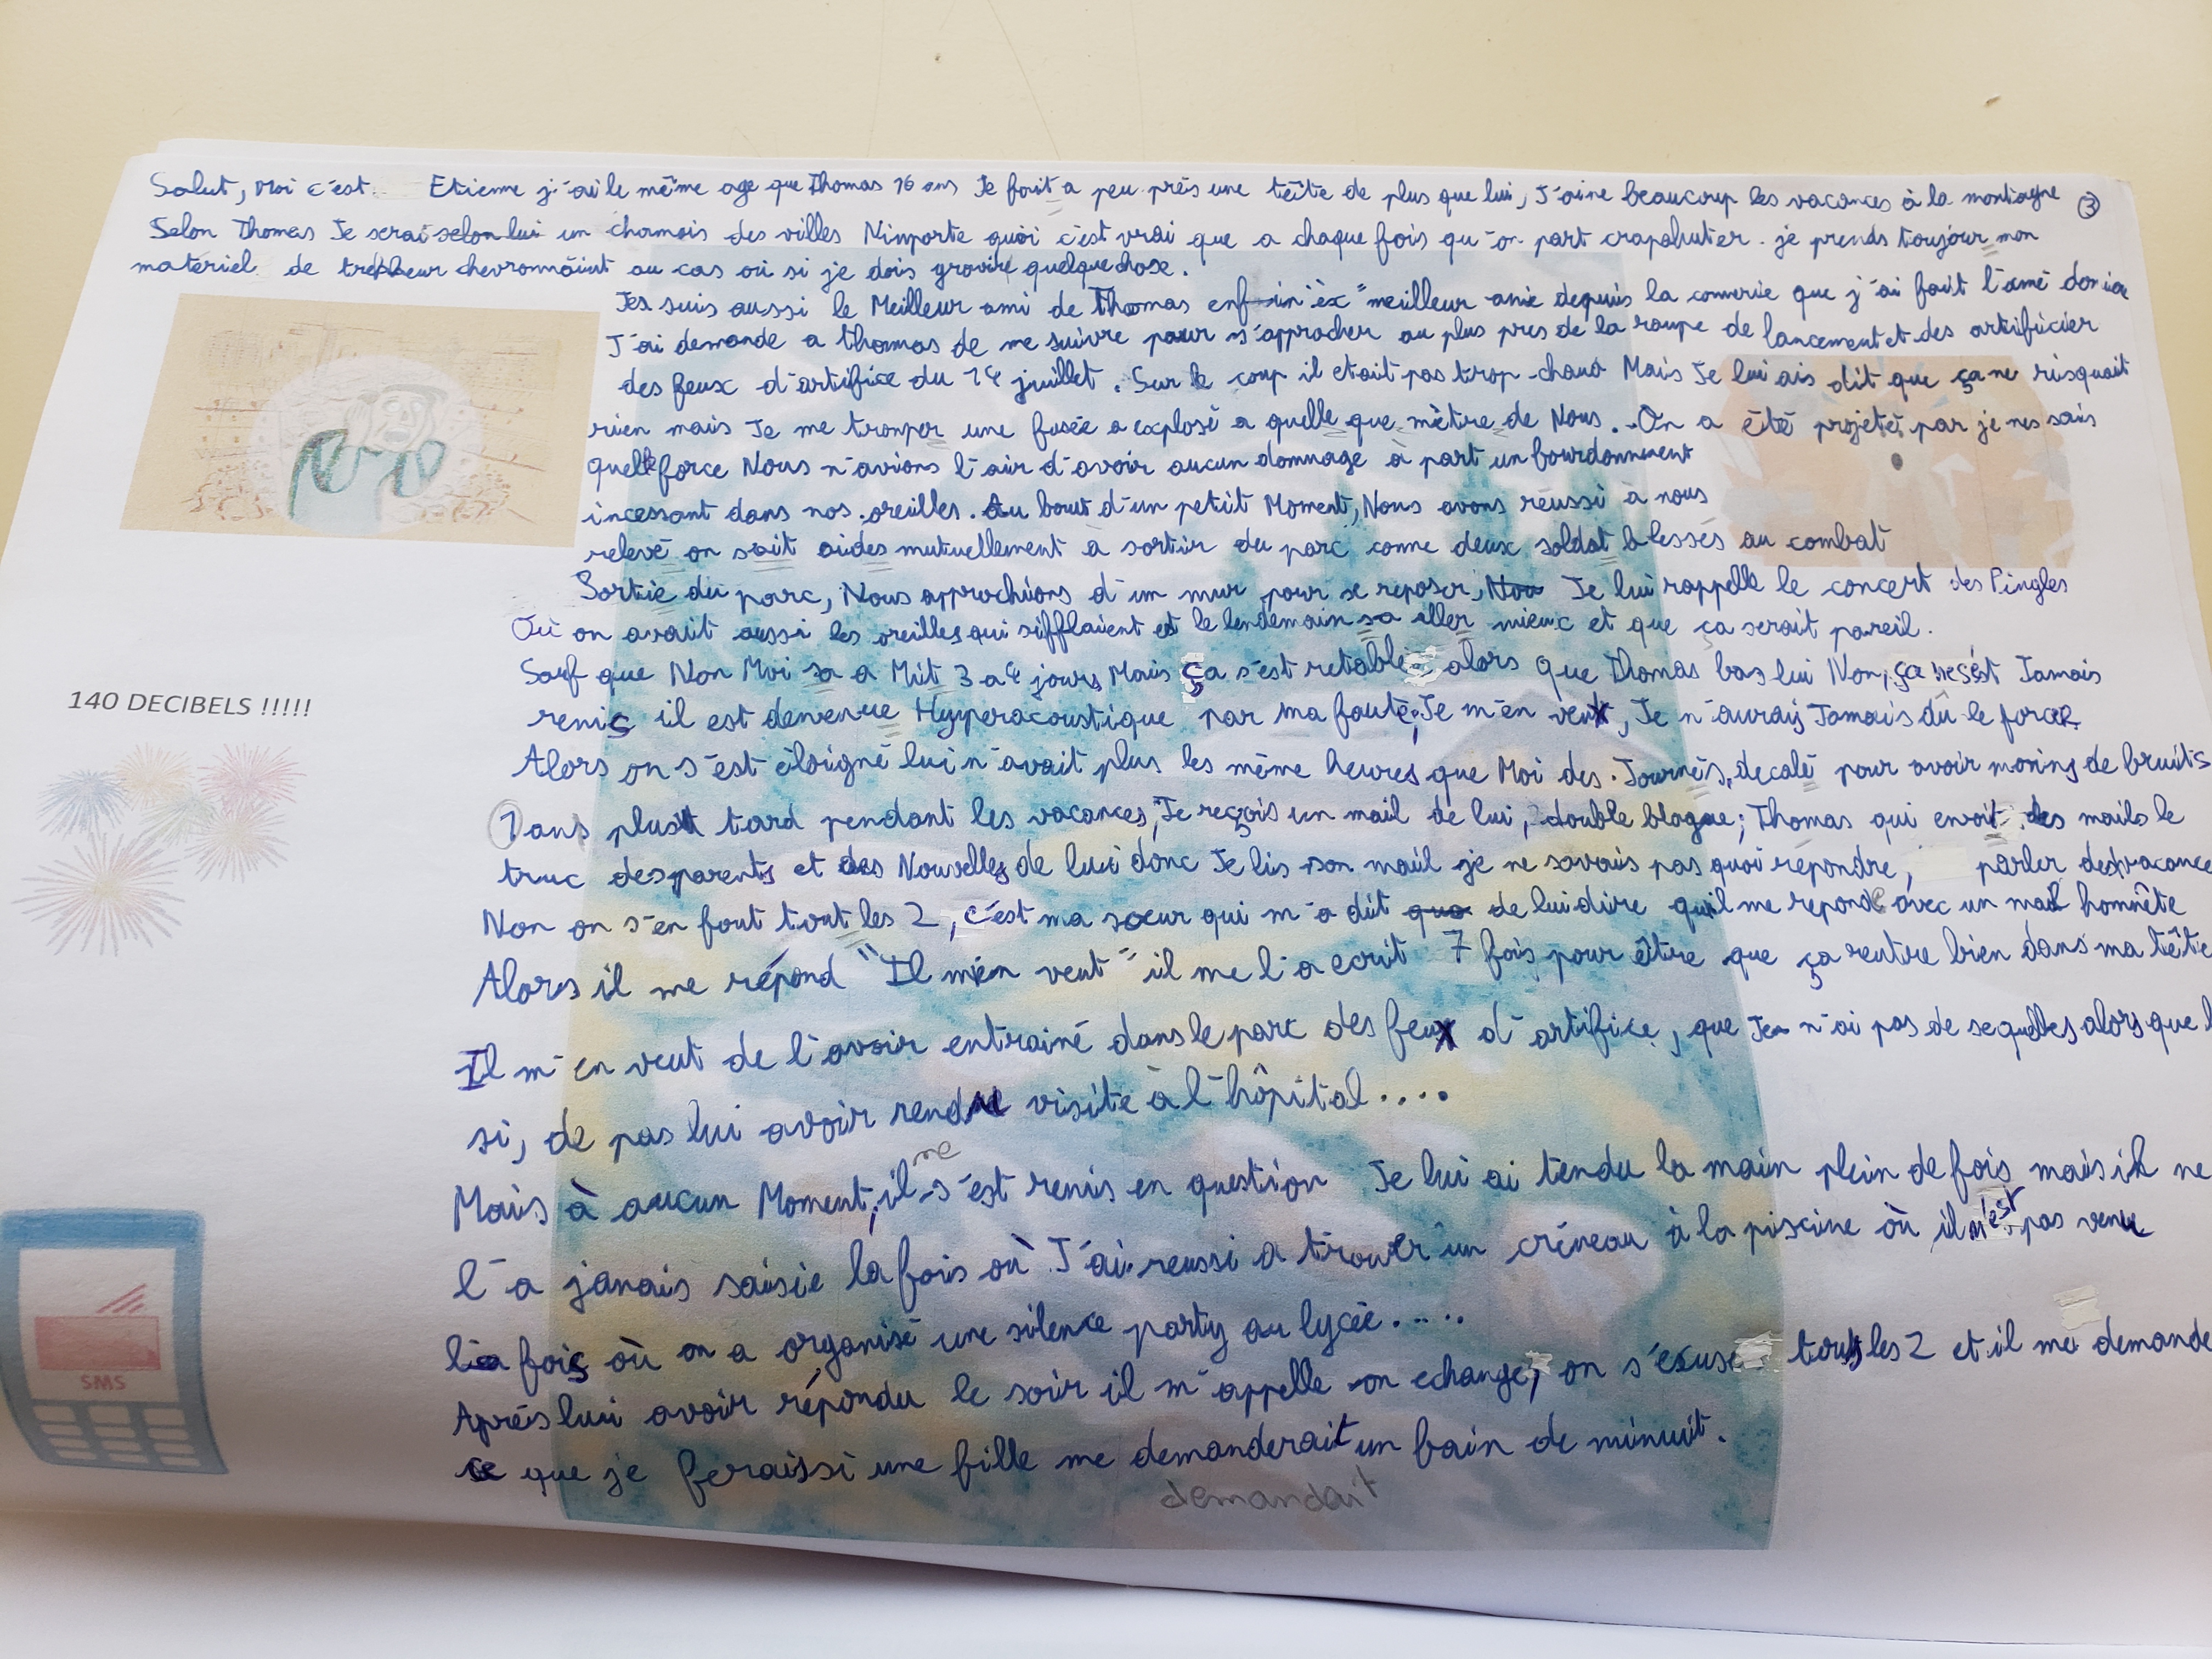 Salut, Moi c'est Etienne j'ai le même age que Thomas 16 ans Je fait a peu près une tête de plus que lui, J'aime beaucoup les vacances à la montagne ③
Selon Thomas Je serai selon lui un chamois des villes N'importe quoi c'est vrai que a chaque fois qu'on part crapahuter je prends toujour mon
materiel de chevronnaint au cas où si je dois gravire quelque chose.
Jes suis aussi le Meilleur ami de Thomas enfin "ex" meilleur amie depuis la connerie que j'ai fait l'amé
J'ai demande a thomas de me suivre pour s'approcher au plus pres de la rampe de lancement et des artificier
des feux d'artifice du 14 juillet. Sur le coup il etait pas trop chaud Mais Je lui ais dit que ça ne risquait
rien mais Je me tromper une fusée a explosé a quelle que mètre de Nous... On a été projeté par je nes sais
quelle force Nous n'avions l'air d'avoir aucun dommage à part un bourdonnement
incessant dans nos oreilles. Au bout d'un petit Moment, Nous avons réussi à nous
relevé on sait aides mutuellement à sortir du parc comme deux soldat blessés au combat
Sortie du parc, Nous approchions d'un mur pour se reposer, Je lui rappelle le concert des Pingles
Où on avait aussi les oreilles qui sifflaient et le lendemain sa aller mieux et que ça serait pareil.
Sauf que Non Moi sa a Mit 3 a 4 jours Mais ça s'est retabli alors que Thomas bas lui Non, ça ne s'est Jamais
remis il est devenue Hyperacoustique par ma faute, Je m'en veux, Je n'aurais Jamais dû le forcer.
Alors on s'est éloigné lui n'avait plus les même heures que Moi des Journés decalé pour avoir moins de bruits
1 ans plus tard pendant les vacances, Je reçois un mail de lui, double blague; Thomas qui envoit des mails le
truc des parents et des Nouvelles de lui donc Je lis son mail je ne savais pas quoi repondre, parler des vacance
Non on s'en fout tout les 2, c'est ma soeur qui m'a dit que de lui dire qu'il me reponde avec un mail honnête
Alors il me répond "Il m'en veut" il me l'a ecrit 7 fois pour être que ça rentre bien dans ma tête
Il m'en veut de l'avoir entrainé dans le parc des feux d'artifice, que Je n'ai pas de sequelles alors que l
si, de pas lui avoir rendu visite à l'hôpital....
me
Mais à aucun Moment, il s'est remis en question Je lui ai tendu la main plein de fois mais il ne
l'a jamais saisie la fois où J'ai reussi a trouver un créneau à la piscine où il n'est pas venu
la fois où on a organisé une silence party au lycée.....
Après lui avoir répondu le soir il m'appelle on echange, on s'excuse tous les 2 et il me demande
ce que je ferais si une fille me demanderait un bain de minuit.
demandait
140 DECIBELS !!!!!
SMS